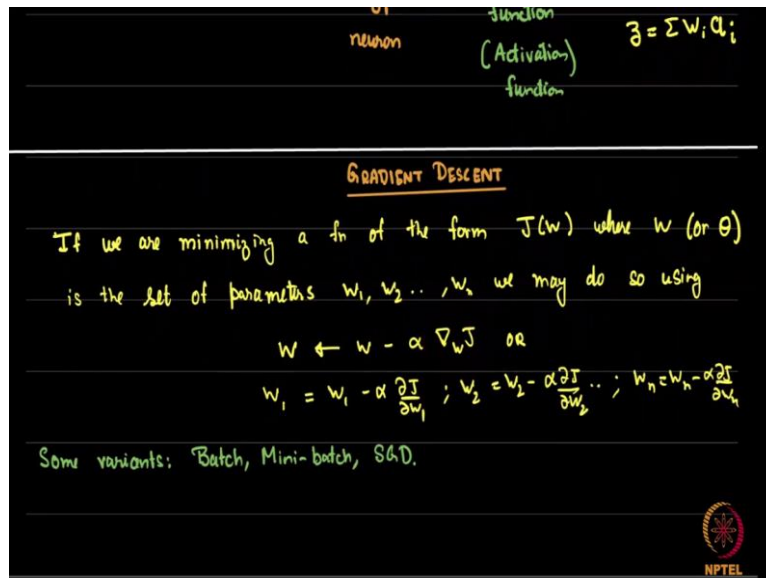 of function
neuron (Activation) z = Σ wᵢ aᵢ
function
GRADIENT DESCENT
If we are minimizing a fn of the form J(w) where w (or θ)
is the set of parameters w₁, w₂ .. , wₙ we may do so using
w ← w - α ∇_w J OR
w₁ = w₁ - α ∂J/∂w₁ ; w₂ = w₂ - α ∂J/∂w₂ .. ; wₙ = wₙ - α ∂J/∂wₙ
Some variants: Batch, Mini-batch, SGD.
NPTEL